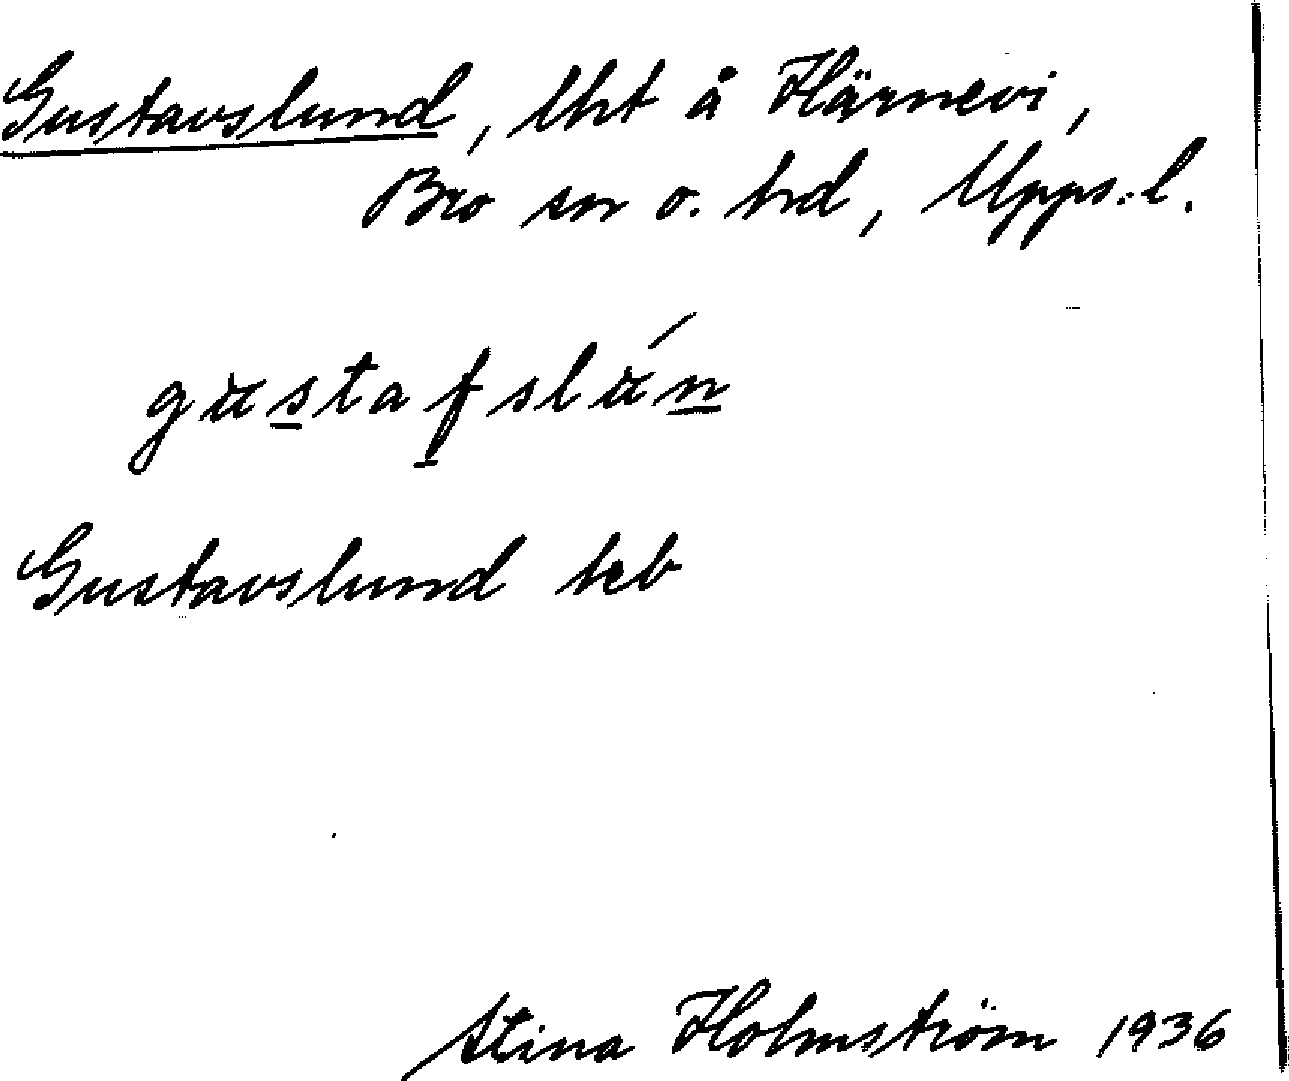 Gustavslund, lht å Härnevi,
Bro sn o. hd, Upps.l.
gustafslún
Gustavslund keb
Stina Holmström 1936